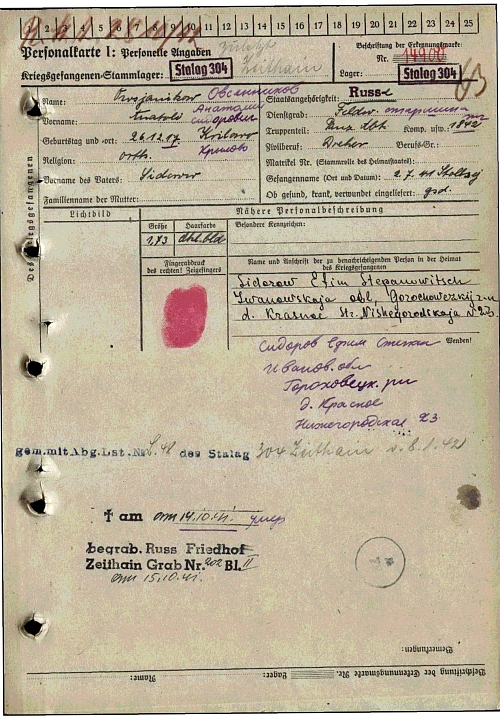 1 2 3 4 5 6 7 8 9 10 11 12 13 14 15 16 17 18 19 20 21 22 23 24 25
Personalkarte I: Personelle Angaben
Beschriftung der Erkennungsmarke:
Kriegsgefangenen-Stammlager: Stalag 304 Zeithain
Nr.
Lager: Stalag 304
Des Kriegsgefangenen
Name: Owsjanikow Овсянников
Staatsangehörigkeit: Russe
Vorname: Anatolij Анатолий Сидорович
Dienstgrad: Feldw.
Truppenteil: Komp. usw.:
Geburtstag und -ort: 26.12.17 Krilowo Крылово
Zivilberuf: Dreher Berufs-Gr.:
Religion: orth.
Matrikel Nr. (Stammrolle des Heimatstaates):
Vorname des Vaters: Sidorow
Gefangennahme (Ort und Datum): 2.7.41
Familienname der Mutter:
Ob gesund, krank, verwundet eingeliefert: gsd.
Lichtbild
Nähere Personalbeschreibung
Größe Haarfarbe
Besondere Kennzeichen:
1,73 dkl.bld
Fingerabdruck
des rechten! Zeigefingers
Name und Anschrift der zu benachrichtigenden Person in der Heimat
des Kriegsgefangenen
Sidorow Efim Stepanowitsch
Iwanowskaja obl, Gorochowezkij
d. Krasnoe Str. Nishegorodskaja N 23
Wenden!
Сидоров Ефим Степан
Иванов. обл
Гороховецк. р-н
д. Красное
Нижегородская 23
gem.mit.Abg.Lst.Nr. des Stalag 304 Zeithain v. 8.1.42
† am am 14.10.41. умер
begrab. Russ Friedhof
Zeithain Grab Nr. 202 Bl. II
am 15.10.41.
Bemerkungen:
Beschriftung der Erkennungsmarke Nr. Lager: Name: